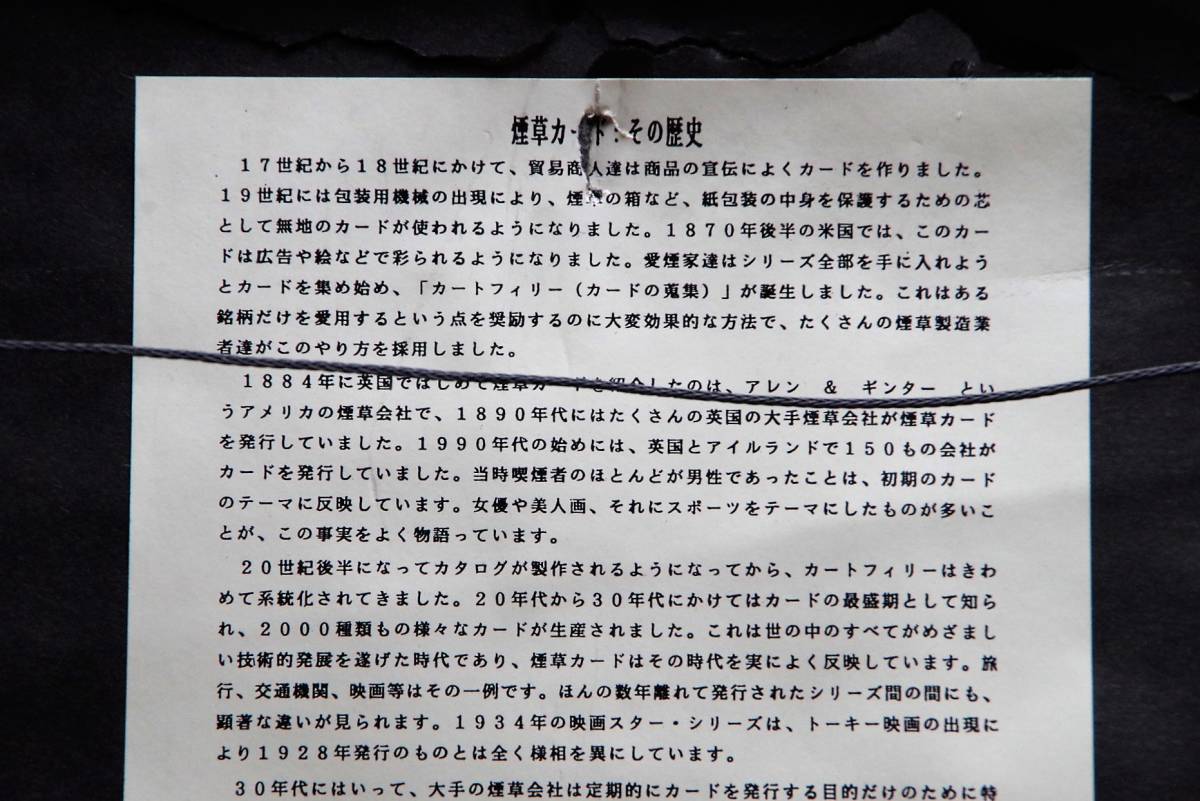 煙草カード:その歴史
17世紀から18世紀にかけて、貿易商人達は商品の宣伝によくカードを作りました。
19世紀には包装用機械の出現により、煙草の箱など、紙包装の中身を保護するための芯
として無地のカードが使われるようになりました。1870年後半の米国では、このカー
ドは広告や絵などで彩られるようになりました。愛煙家達はシリーズ全部を手に入れよう
とカードを集め始め、「カートフィリー(カードの蒐集)」が誕生しました。これはある
銘柄だけを愛用するという点を奨励するのに大変効果的な方法で、たくさんの煙草製造業
者達がこのやり方を採用しました。
1884年に英国ではじめて煙草カードを紹介したのは、アレン & ギンター とい
うアメリカの煙草会社で、1890年代にはたくさんの英国の大手煙草会社が煙草カード
を発行していました。1990年代の始めには、英国とアイルランドで150もの会社が
カードを発行していました。当時喫煙者のほとんどが男性であったことは、初期のカード
のテーマに反映しています。女優や美人画、それにスポーツをテーマにしたものが多いこ
とが、この事実をよく物語っています。
20世紀後半になってカタログが製作されるようになってから、カートフィリーはきわ
めて系統化されてきました。20年代から30年代にかけてはカードの最盛期として知ら
れ、2000種類もの様々なカードが生産されました。これは世の中のすべてがめざまし
い技術的発展を遂げた時代であり、煙草カードはその時代を実によく反映しています。旅
行、交通機関、映画等はその一例です。ほんの数年離れて発行されたシリーズ間の間にも、
顕著な違いが見られます。1934年の映画スター・シリーズは、トーキー映画の出現に
より1928年発行のものとは全く様相を異にしています。
30年代にはいって、大手の煙草会社は定期的にカードを発行する目的だけのために特